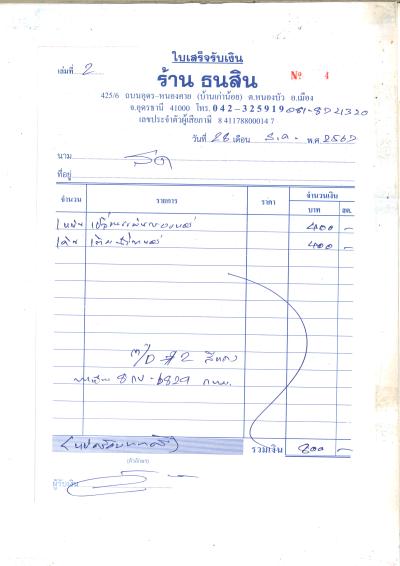 ใบเสร็จรับเงิน
เล่มที่ 2
ร้าน ธนสิน
№ 4
425/6 ถนนอุดร-หนองคาย (บ้านเก่าน้อย) ต.หนองบัว อ.เมือง
จ.อุดรธานี 41000 โทร. 042-325919 081-8721320
เลขประจำตัวผู้เสียภาษี 8 41178800014 7
วันที่ 28 เดือน ธ.ค. พ.ศ. 2567
นาม สด
ที่อยู่
จำนวน รายการ ราคา จำนวนเงิน
บาท สต.
400 -
1 คัน 400 -
M/D #2 สีแดง
8 กง-6829 กทม.
(แปดร้อยบาท) รวมเงิน 800 -
(ตัวอักษร)
ผู้รับเงิน